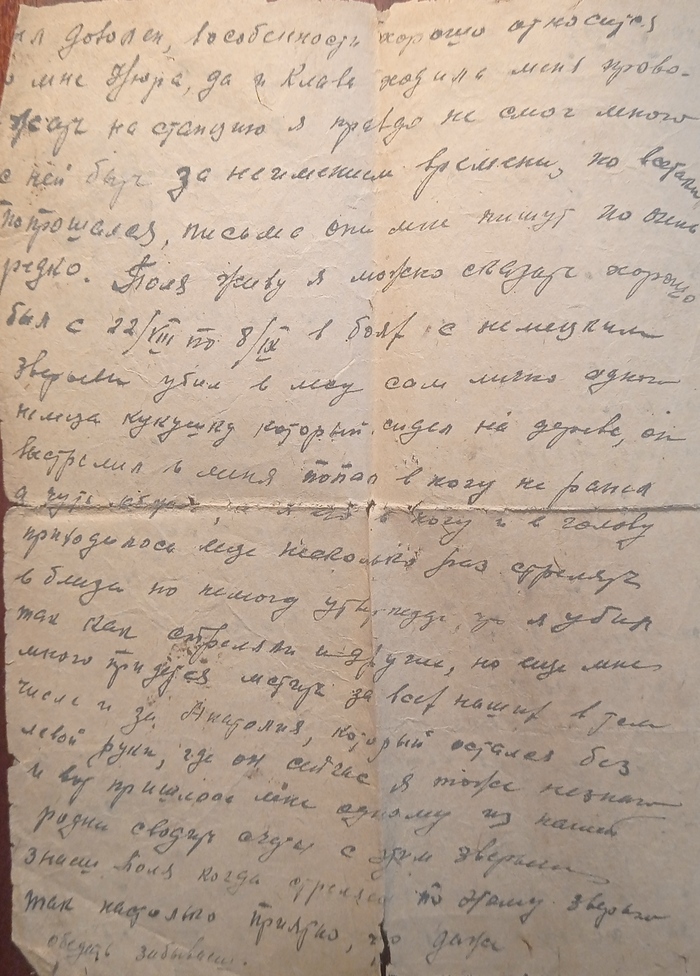 доволен, в особенности хорошо относится
мне Нюра, да и Клава ходила меня прово-
жать на станцию я правда не смог много
с ней быть за неимением времени, но
попрощался, письма они мне пишут но очень
редко. Поля живу я можно сказать хорошо
был с 22/VIII по 8/IX в боях с немецким
зверьем убил в лесу сам лично одного
немца кукушку который сидел на дереве, он
выстрелил в меня попал в ногу не ранил
а чуть в ногу и в голову
приходилось еще несколько раз стрелять
в близи но немогу что я убил
так как стреляли и другие, но еще мне
много придется мстить за всех наших в том
числе и за Анатолия, который остался без
левой руки, где он сейчас я тоже незнаю
и вот пришлось мне одному из нашей
родни сводить счеты с этим зверьем
знаеш Поля когда стреляеш по этому зверью
так настолько приятно, что даже
обедать забываеш.